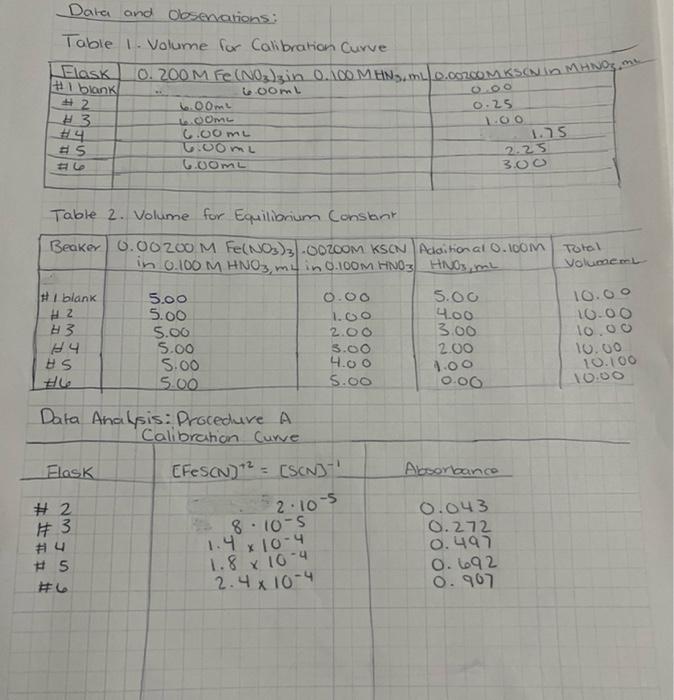 Data and Observations:
Table 1. Volume for Calibration Curve
Flask 0.200M Fe(NO3)3 in 0.100M HN3, mL 0.00200M KSCN in MHNO3, mL
#1 blank 6.00mL 0.00
#2 6.00mL 0.25
#3 6.00mL 1.00
#4 6.00mL 1.75
#5 6.00mL 2.25
#6 6.00mL 3.00
Table 2. Volume for Equilibrium Constant
Beaker 0.00200M Fe(NO3)3 .00200M KSCN Additional 0.100M Total
in 0.100M HNO3, mL in 0.100M HNO3 HNO3, mL Volume mL
#1 blank 5.00 0.00 5.00 10.00
#2 5.00 1.00 4.00 10.00
#3 5.00 2.00 3.00 10.00
#4 5.00 3.00 2.00 10.00
#5 5.00 4.00 1.00 10.100
#6 5.00 5.00 0.00 10.00
Data Analysis: Procedure A
Calibration Curve
Flask [FeSCN]+2 = [SCN]-1 Absorbance
#2 2·10-5 0.043
#3 8·10-5 0.272
#4 1.4 x 10-4 0.497
#5 1.8 x 10-4 0.692
#6 2.4 x 10-4 0.907